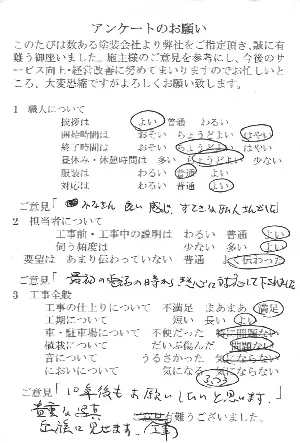 アンケートのお願い
このたびは数ある塗装会社より弊社をご指定頂き、誠に有
難う御座いました。施主様のご意見を参考にし、今後のサ
ービス向上・経営改善に努めてまいりますのでお忙しいと
ころ、大変恐縮ですがよろしくお願い致します。
1 職人について
挨拶は よい 普通 わるい
開始時間は おそい ちょうどよい はやい
終了時間は おそい ちょうどよい はやい
昼休み・休憩時間は 多い ちょうどよい 少ない
服装は わるい 普通 よい
対応は わるい 普通 よい
ご意見「みなさん 良い感じ、すてきな職人さんでした
2 担当者について
工事前・工事中の説明は わるい 普通 よい
伺う頻度は 少ない 多い よい
要望は あまり伝わっていない 普通 よく伝わった
ご意見「最初の電話の時から 熱心に対応して下さいました
3 工事全般
工事の仕上りについて 不満足 まあまあ 満足
工期について 短い 長い よい
車・駐車場について 不便だった 特に問題ない
植栽について だいぶ傷んだ 問題ない
音について うるさかった 気にならない
においについて 気になる 気にならない
ふつう
ご意見「10年後もお願いしたいと思います。」
貴重な写真 有難うございました。
家族に見せます。